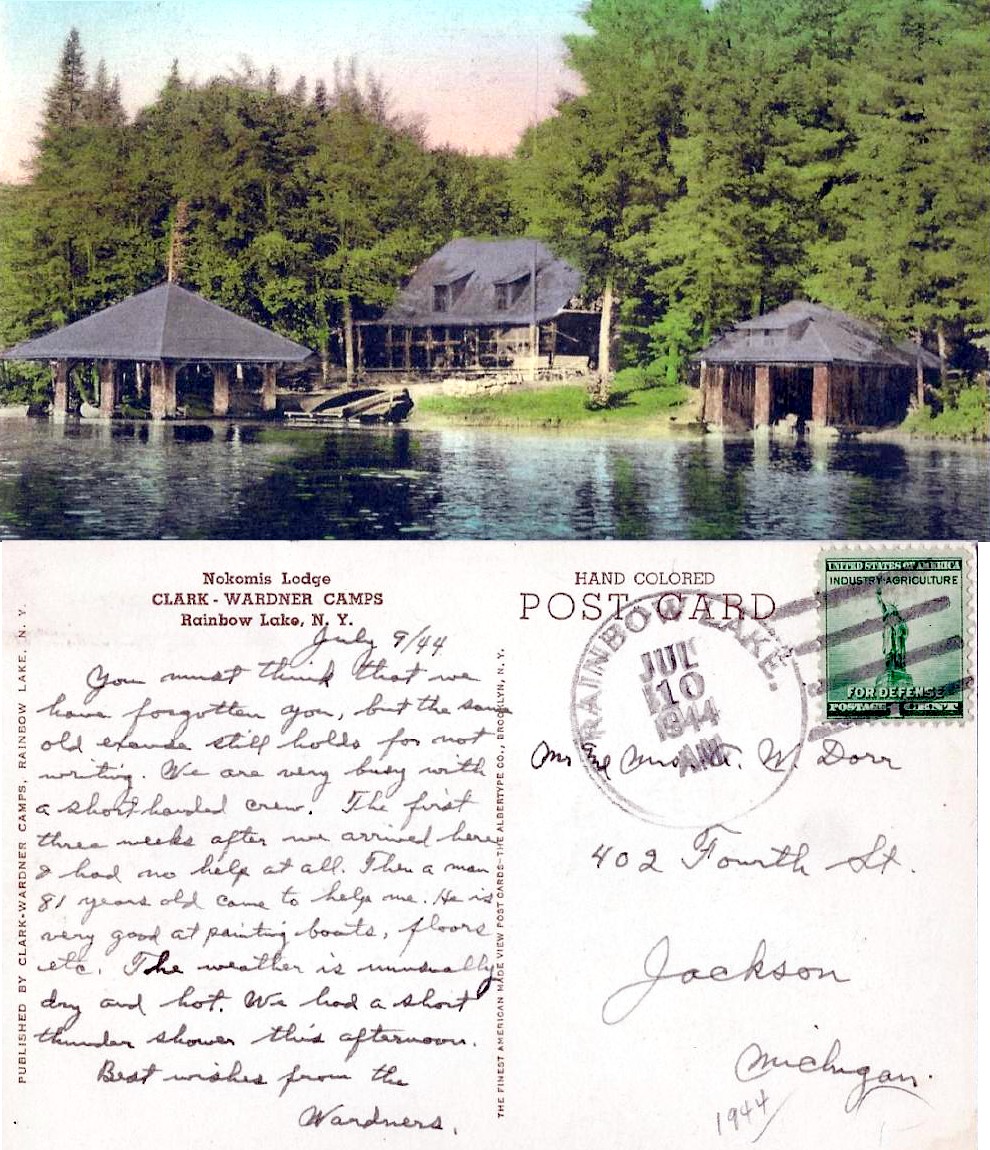 Nokomis Lodge
CLARK - WARDNER CAMPS
Rainbow Lake, N. Y.
July 9/44
You must think that we
have forgotten you, but the same
old excuse still holds for not
writing. We are very busy with
a short handed crew. The first
three weeks after we arrived here
I had no help at all. Then a man
81 years old came to help me. He is
very good at painting boats, floors
etc. The weather is unusually
dry and hot. We had a short
thunder shower this afternoon.
Best wishes from the
Wardners.
PUBLISHED BY CLARK-WARDNER CAMPS, RAINBOW LAKE, N. Y.
THE FINEST AMERICAN MADE VIEW POST CARDS—THE ALBERTYPE CO., BROOKLYN, N. Y.
HAND COLORED
POST CARD
RAINBOW LAKE,
JUL
10
1944
AM
UNITED STATES OF AMERICA
INDUSTRY·AGRICULTURE
FOR DEFENSE
POSTAGE 1 CENT
Mr Mrs W. Dorr
402 Fourth St.
Jackson
Michigan.
1944